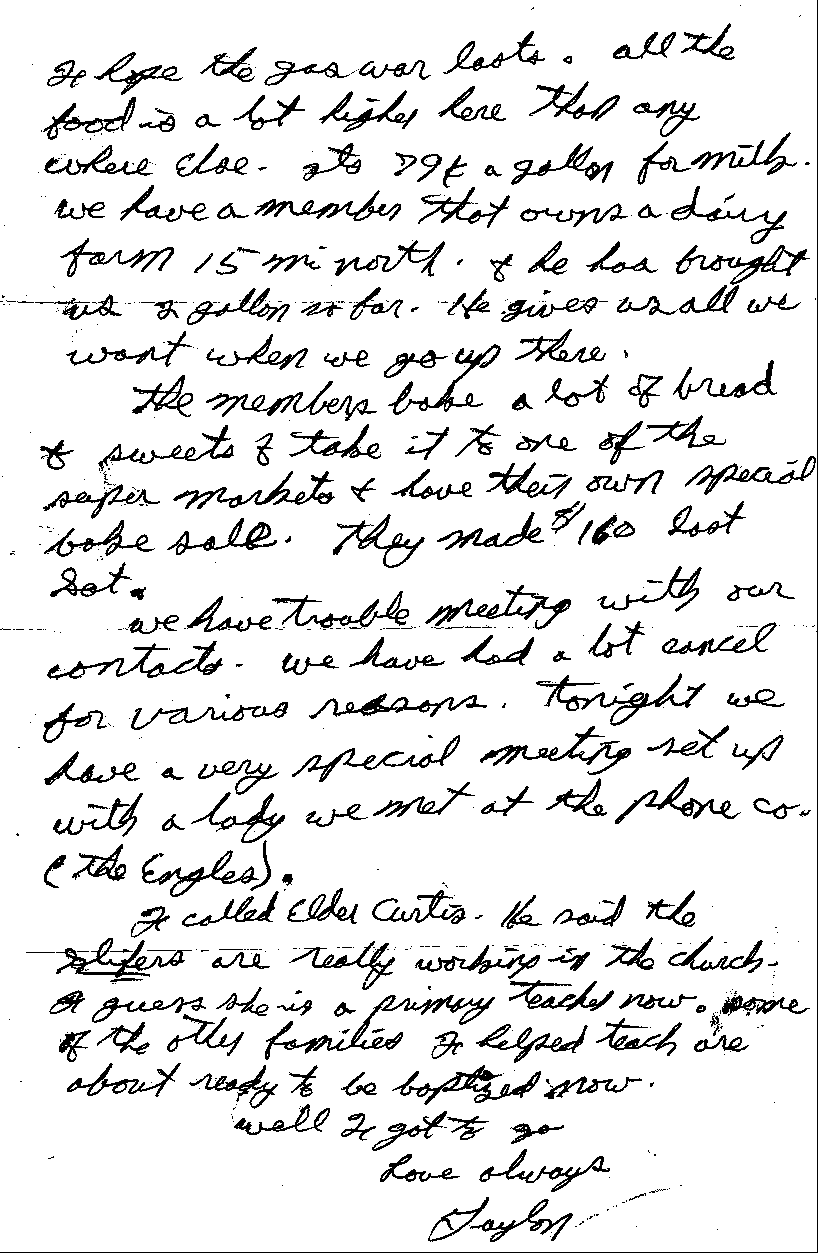 I hope the gas war lasts. all the
food is a lot higher here than any
where else. its 79¢ a gallon for milk.
we have a member that owns a dairy
farm 15 mi north. & he has brought
us 2 gallon so far. He gives us all we
want when we go up there.
The members bake a lot of bread
& sweets & take it to one of the
super markets & have their own special
bake sale. They made $160 last
Sat.
we have trouble meeting with our
contacts. we have had a lot cancel
for various reasons. Tonight we
have a very special meeting set up
with a lady we met at the phone co.
(the Engles).
I called Elder Curtis. He said the
Slifers are really working in the church.
I guess she is a primary teacher now. some
of the other families I helped teach are
about ready to be baptized now.
well I got to go
Love always
Taylon